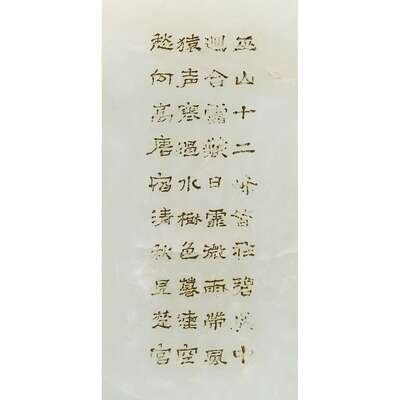 巫山十二峯皆在碧虛中
迴合雲藏日霏微雨帶風
猿声寒過水樹色暮連空
愁向高唐宿清秋見楚宮